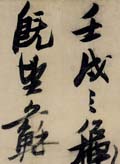 壬戌之穐
既望蘇